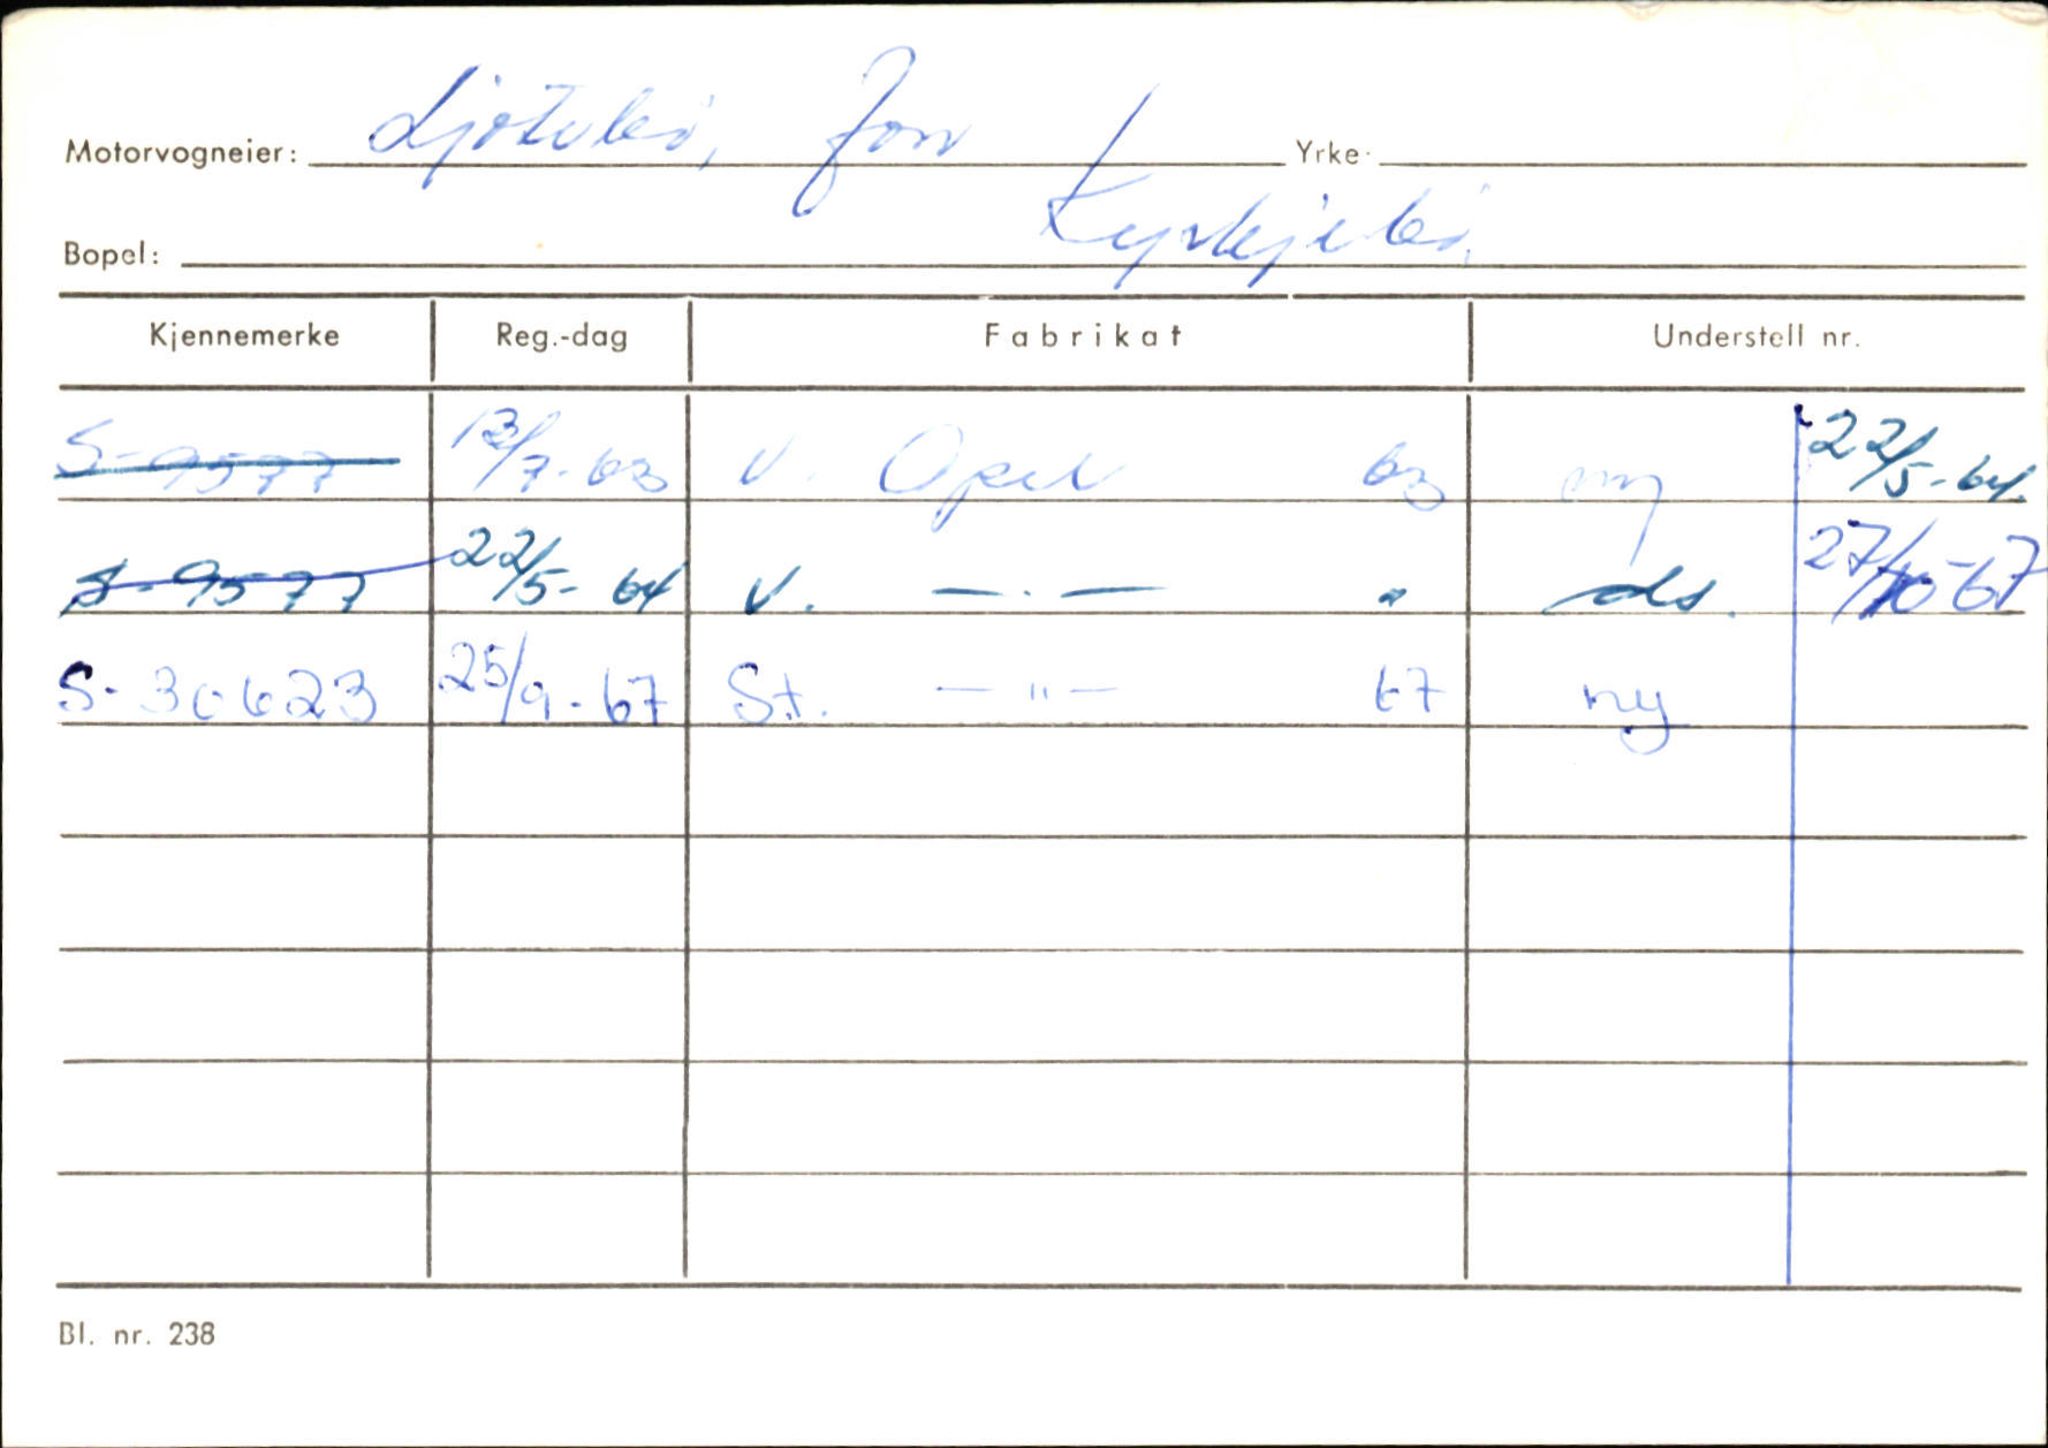 Motorvogneier: Ljötebö, Jon Yrke:
Bopel: Kyrkjebö.
Kjennemerke Reg.-dag Fabrikat Understell nr.
S-9577 13/7-63 V. Opel 63 ny 22/5-64.
S-9577 22/5-64 V. —.— " do. 27/10-67
S-30623 25/9-67 St. —"— 67 ny
Bl. nr. 238